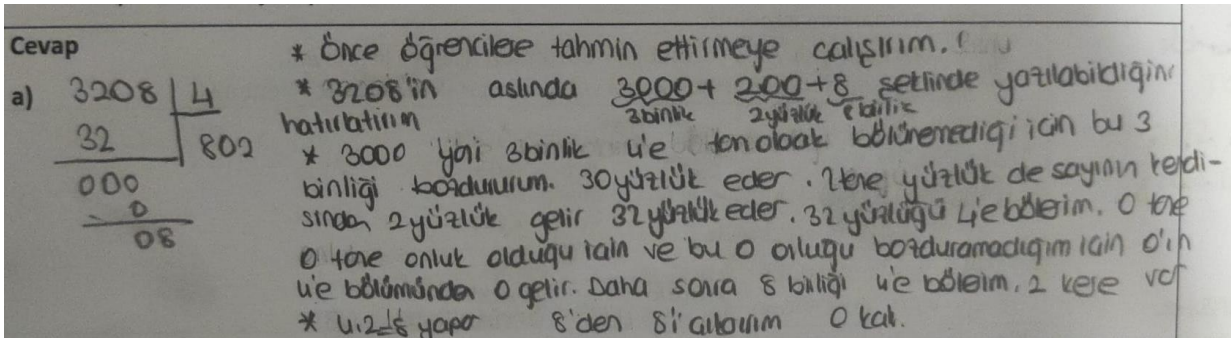 Cevap
a) 3208 | 4
32
802
000
- 0
08
* Önce öğrencilere tahmin ettirmeye çalışırım.
* 3208'in aslında 3000 + 200 + 8 şeklinde yazılabildiğini
3binlik 2yüzlük 8 birlik
hatırlatırım
* 3000 yani 3binlik 4'e tam olarak bölünemediği için bu 3
binliği bozdururum. 30 yüzlük eder. 2tane yüzlük de sayının kendi-
sinden 2yüzlük gelir 32 yüzlük eder. 32 yüzlüğü 4'e bölerim. 0 tane
0 tane onluk olduğu için ve bu 0 onluğu bozduramadığım için 0'ın
4'e bölümünden 0 gelir. Daha sonra 8 birliği 4'e bölerim. 2 kere var
* 4.2=8 yapar 8'den 8'i çıkarırım 0 kalır.